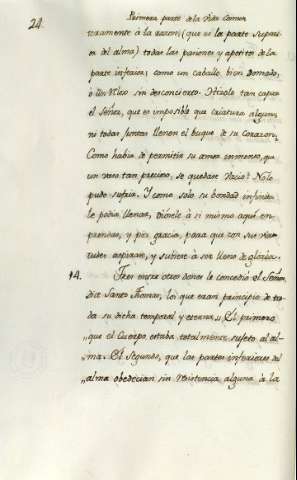 24.
Primera parte de la Vida Comun
teramente à la razon (que es la parte superi-
or del alma) todas las pasiones y apetitos de la
parte inferior; como un caballo bien domado,
ò un Niño sin desconcierto. Hizole tan capaz
el Señor, que es imposible que criatura alguna,
ni todas juntas llenen el buque de su corazon.
Como habia de permitir su amor inmenso, que
un vaso tan precioso, se quedase vacio? No lo
pudo sufrir. Y como solo su bondad infinita
le podia llenar, diosele à si mismo aqui en
prendas, y por gracia, para que con sus vir-
tudes aspirase, y subiese à ser lleno de gloria.
14. Tres entre otros dones le concedió el Señor,
dice Santo Thomas, los que eran principio de to-
da su dicha temporal y eterna. „El primero
„que el Cuerpo estaba totalmente sujeto al al-
„ma. El segundo, que las partes inferiores del
„alma obedecian sin resistencia alguna à la